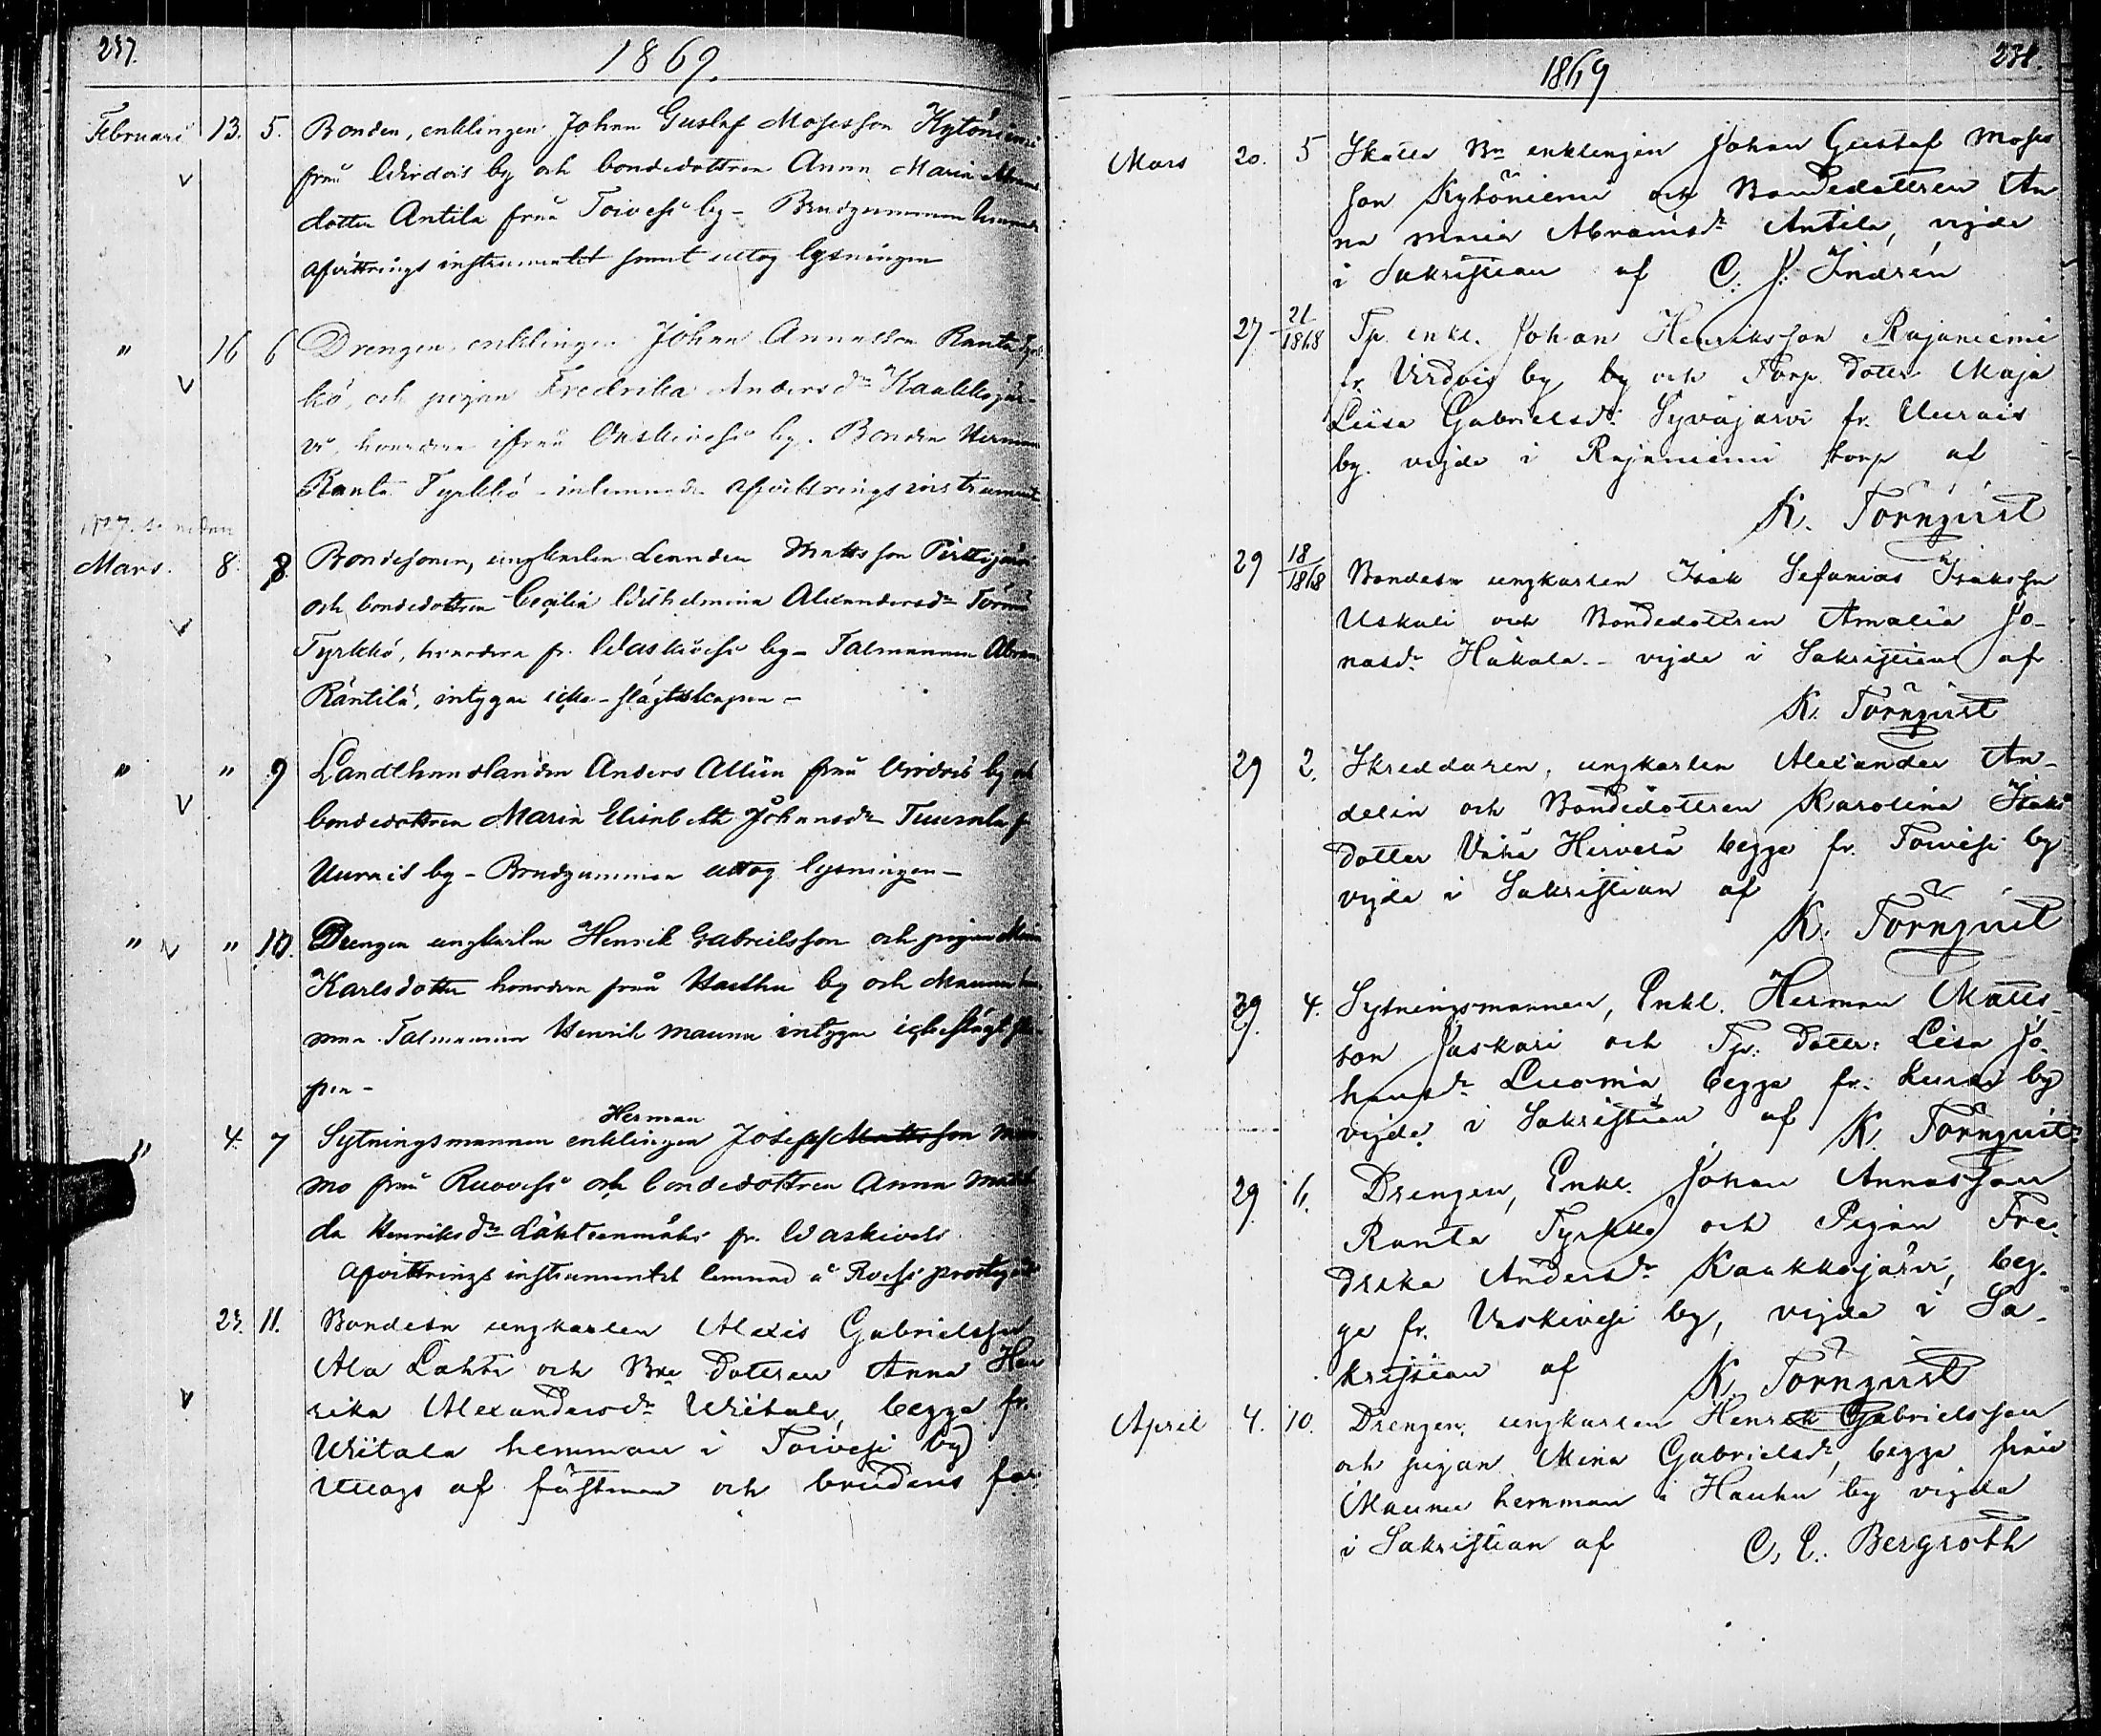 237.
1869.
Februari 13. 5. Bonden, enklingen Johan Gustaf Mosesson Kytöniemi
från Wirdois by och bondedottren Anna Maria Abrams
dotter Antila från Toivesi by - Brudgummen
afvittrings instrumentet samt uttog lysningen
" 16 6 Drengen, enklingen Johan Annasson Ranta Tyrk
kö, och pigan Fredrika Andersdr Kaakkojär-
vi, hvardera ifrån Vaskivesi by. Bonden Herman
Ranta Tyrkkö inlemnade afvittringsinstrument
Mars. 8. 8. Bondesonen, ungkarlen Leander Matsson Pirttijärvi
och bondedottren Cecilia Wilhelmina Alexandersdr Törmä
Tyrkkö, hvardera fr. Waskivesi by - Talmannen Abram
Räntilä, intygar icke-slägtskapen -
" " 9 Landthandlanden Anders Allén från Virdois by och
bondedottren Maria Elisabeth Johansdr Tuurala fr
Uurais by - Brudgummen uttog lysningen -
" " 10. Drengen ungkarlen Henrik Gabrielsson och pigan Mina
Karlsdotter hvardera från Hauhu by och Maunu hem
man. Talmannen Henrik Maunu intygar icke slägtska
pen -
Herman
" 4. 7 Sytningsmannen enklingen Josefs Mattsson
mo från Ruovesi och bondedottren Anna Matil
da Henriksdr Lähteenmäki fr. Waskivesi
Afvittrings instrumentet lemnad å Rvesi prostgård
23. 11. Bondesn ungkarlen Alexis Gabrielsson
Ala Lahti och Bne Dottren Anna Hen
rika Alexandersdr Wiitala, begge fr.
Wiitala hemman i Toivesi by
Uttogs af fästman och brudens far
238.
1869
Mars 20. 5 Skatte Bn enklingen Johan Gustaf Moses
son Kytöniemi och Bondedottren An
na Maria Abramsdr Antila, vigde
i Sakristian af C. J. Indrén
27 21/1868 Tp. enkl. Johan Henriksson Rajaniemi
fr. Virdois by, by och Torp. Dotter Maja
Liisa Gabrielsdr Syväjärvi fr. Uurais
by. vigde i Rajaniemi torp af
K. Törnqvist
29 18/1868 Bondesn ungkarlen Isak Sefanias Isaksson
Uskali och Bondedottren Amalia Jo-
nasdr Hakala - vigde i Sakristian af
K. Törnqvist
29 2. Skreddaren, ungkarlen Alexander An-
delin och Bondedottren Karolina Isaks
dotter Vähä Hirvelä begge fr. Toivesi by
vigde i Sakristian af
K. Törnqvist
29. 4. Sytningsmannen, Enkl. Herman Matts-
son Jaskari och Tp. Dotter: Lisa Jo-
hansdr Luoma begge fr. by
vigde i Sakristian af K. Törnqvist
29. 6. Drengen, Enkl. Johan Annasson
Ranta Tyrkkö och Pigan Fre-
drika Andersdr Kaakkojärvi, beg-
ge fr. Vaskivesi by, vigde i Sa-
kristian af K. Törnqvist
April 4. 10. Drengen, ungkarlen Henrik Gabrielsson
och pigan Mina Gabrielsdr, begge från
Maunu hemman i Hauhu by vigde
i Sakristian af C. E. Bergroth